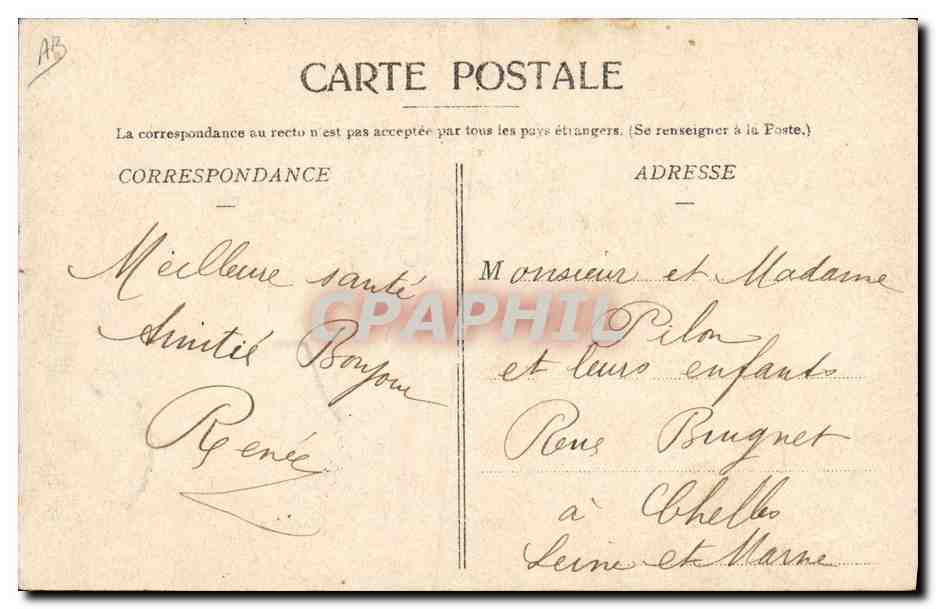 AB
CARTE POSTALE
La correspondance au recto n'est pas acceptée par tous les pays étrangers. (Se renseigner à la Poste.)
CORRESPONDANCE
Meilleure santé
Amitié Bonjour
Renée
ADRESSE
Monsieur et Madame
Pilon
et leurs enfants
Rue Brugnet
à Chelles
Seine et Marne
CPAPHIL